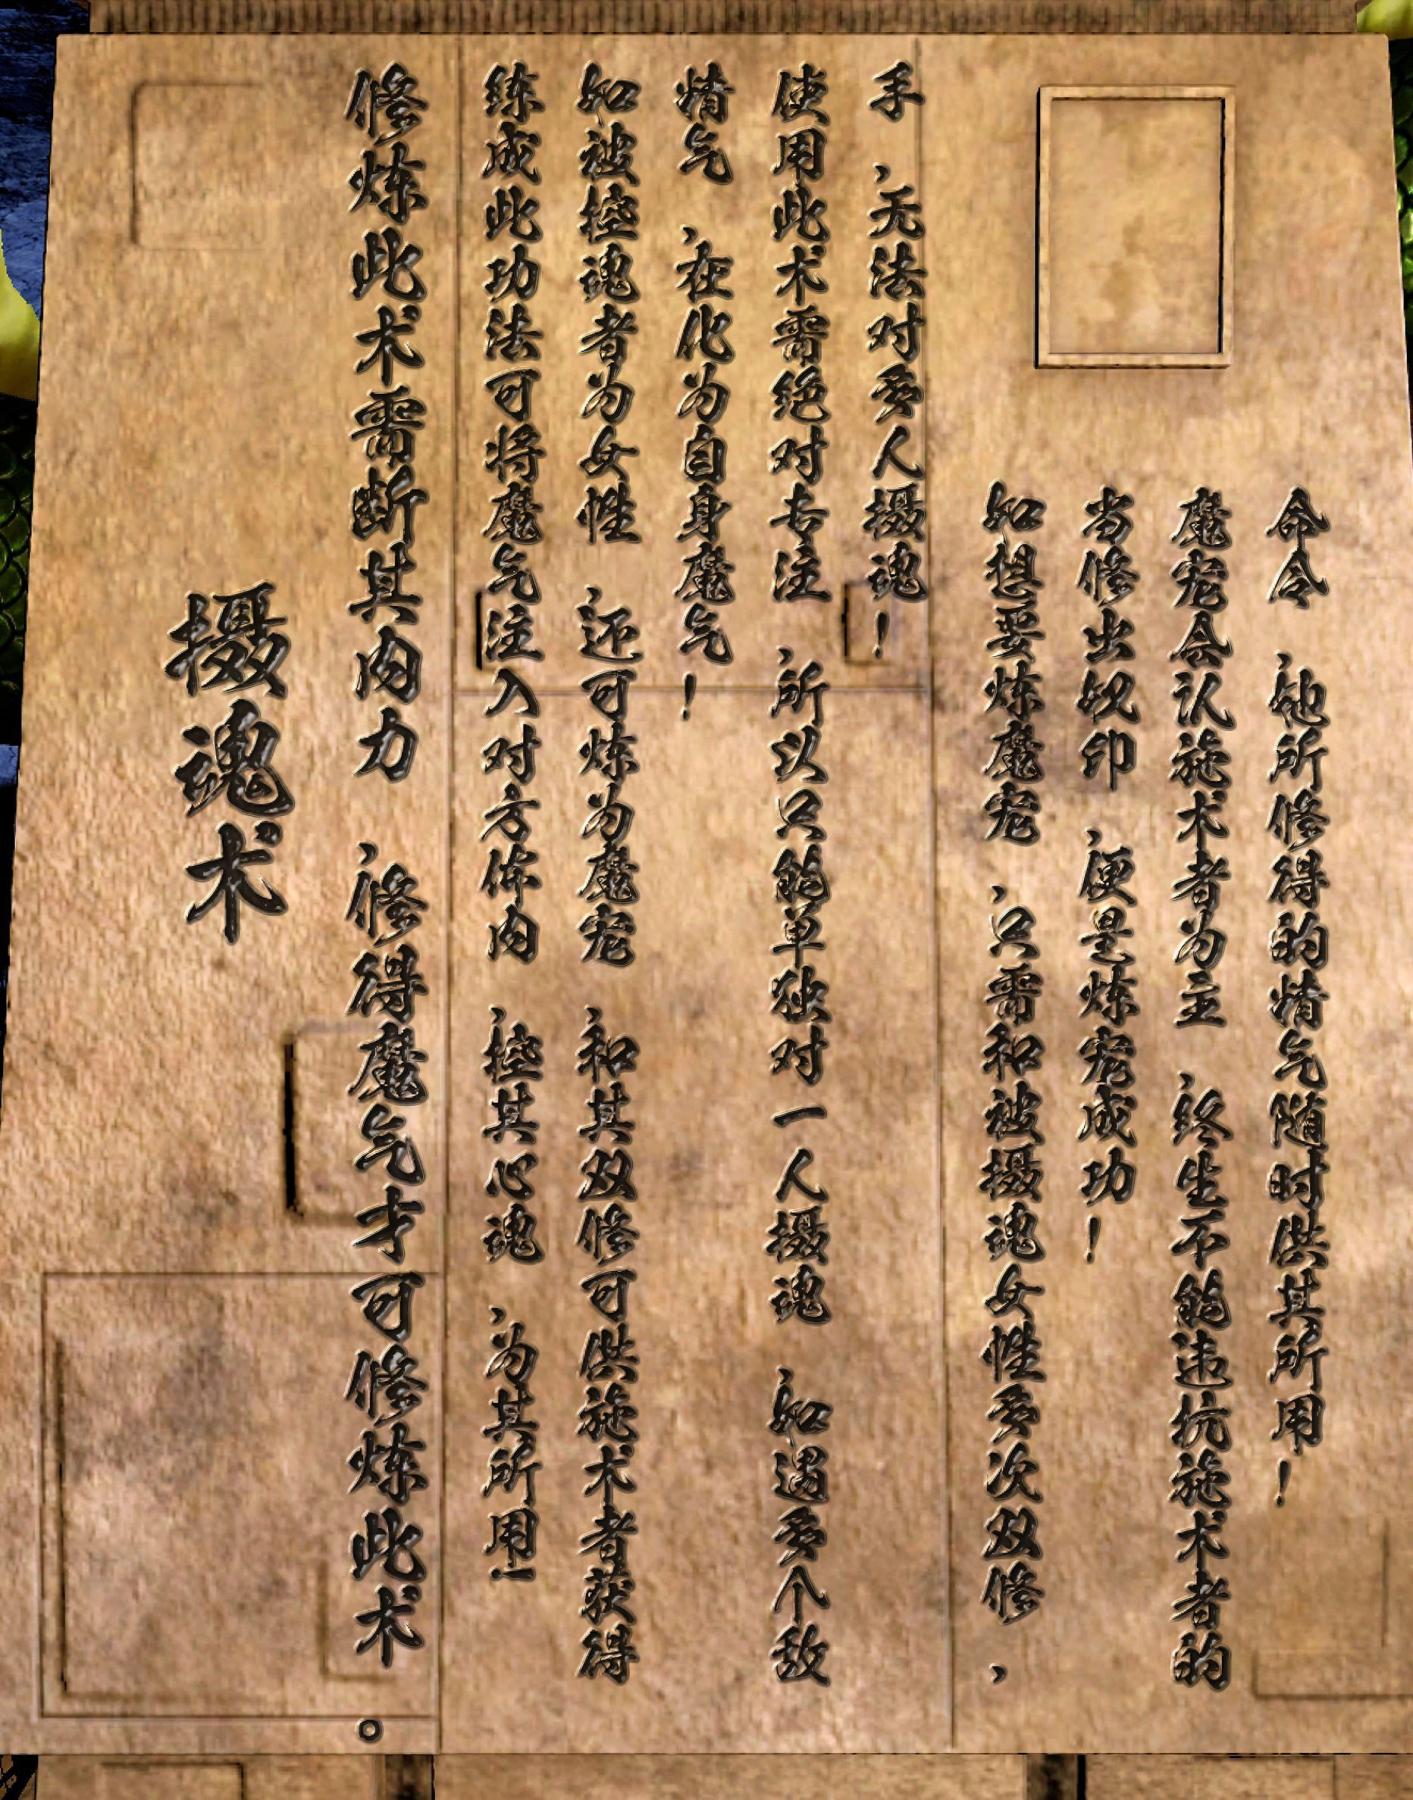 摄魂术
修炼此术需断其内力，修得魔气才可修炼此术。
练成此功法可将魔气注入对方体内，控其心魂，为其所用！
如被控魂者为女性，还可炼为魔宠，和其双修可供施术者获得
精气，在化为自身魔气！
使用此术需绝对专注，所以只能单独对一人摄魂，如遇多个敌
手，无法对多人摄魂！
如想要炼魔宠，只需和被摄魂女性多次双修，
当修出奴印，便是炼宠成功！
魔宠会认施术者为主，终生不能违抗施术者的
命令，她所修得的精气随时供其所用！